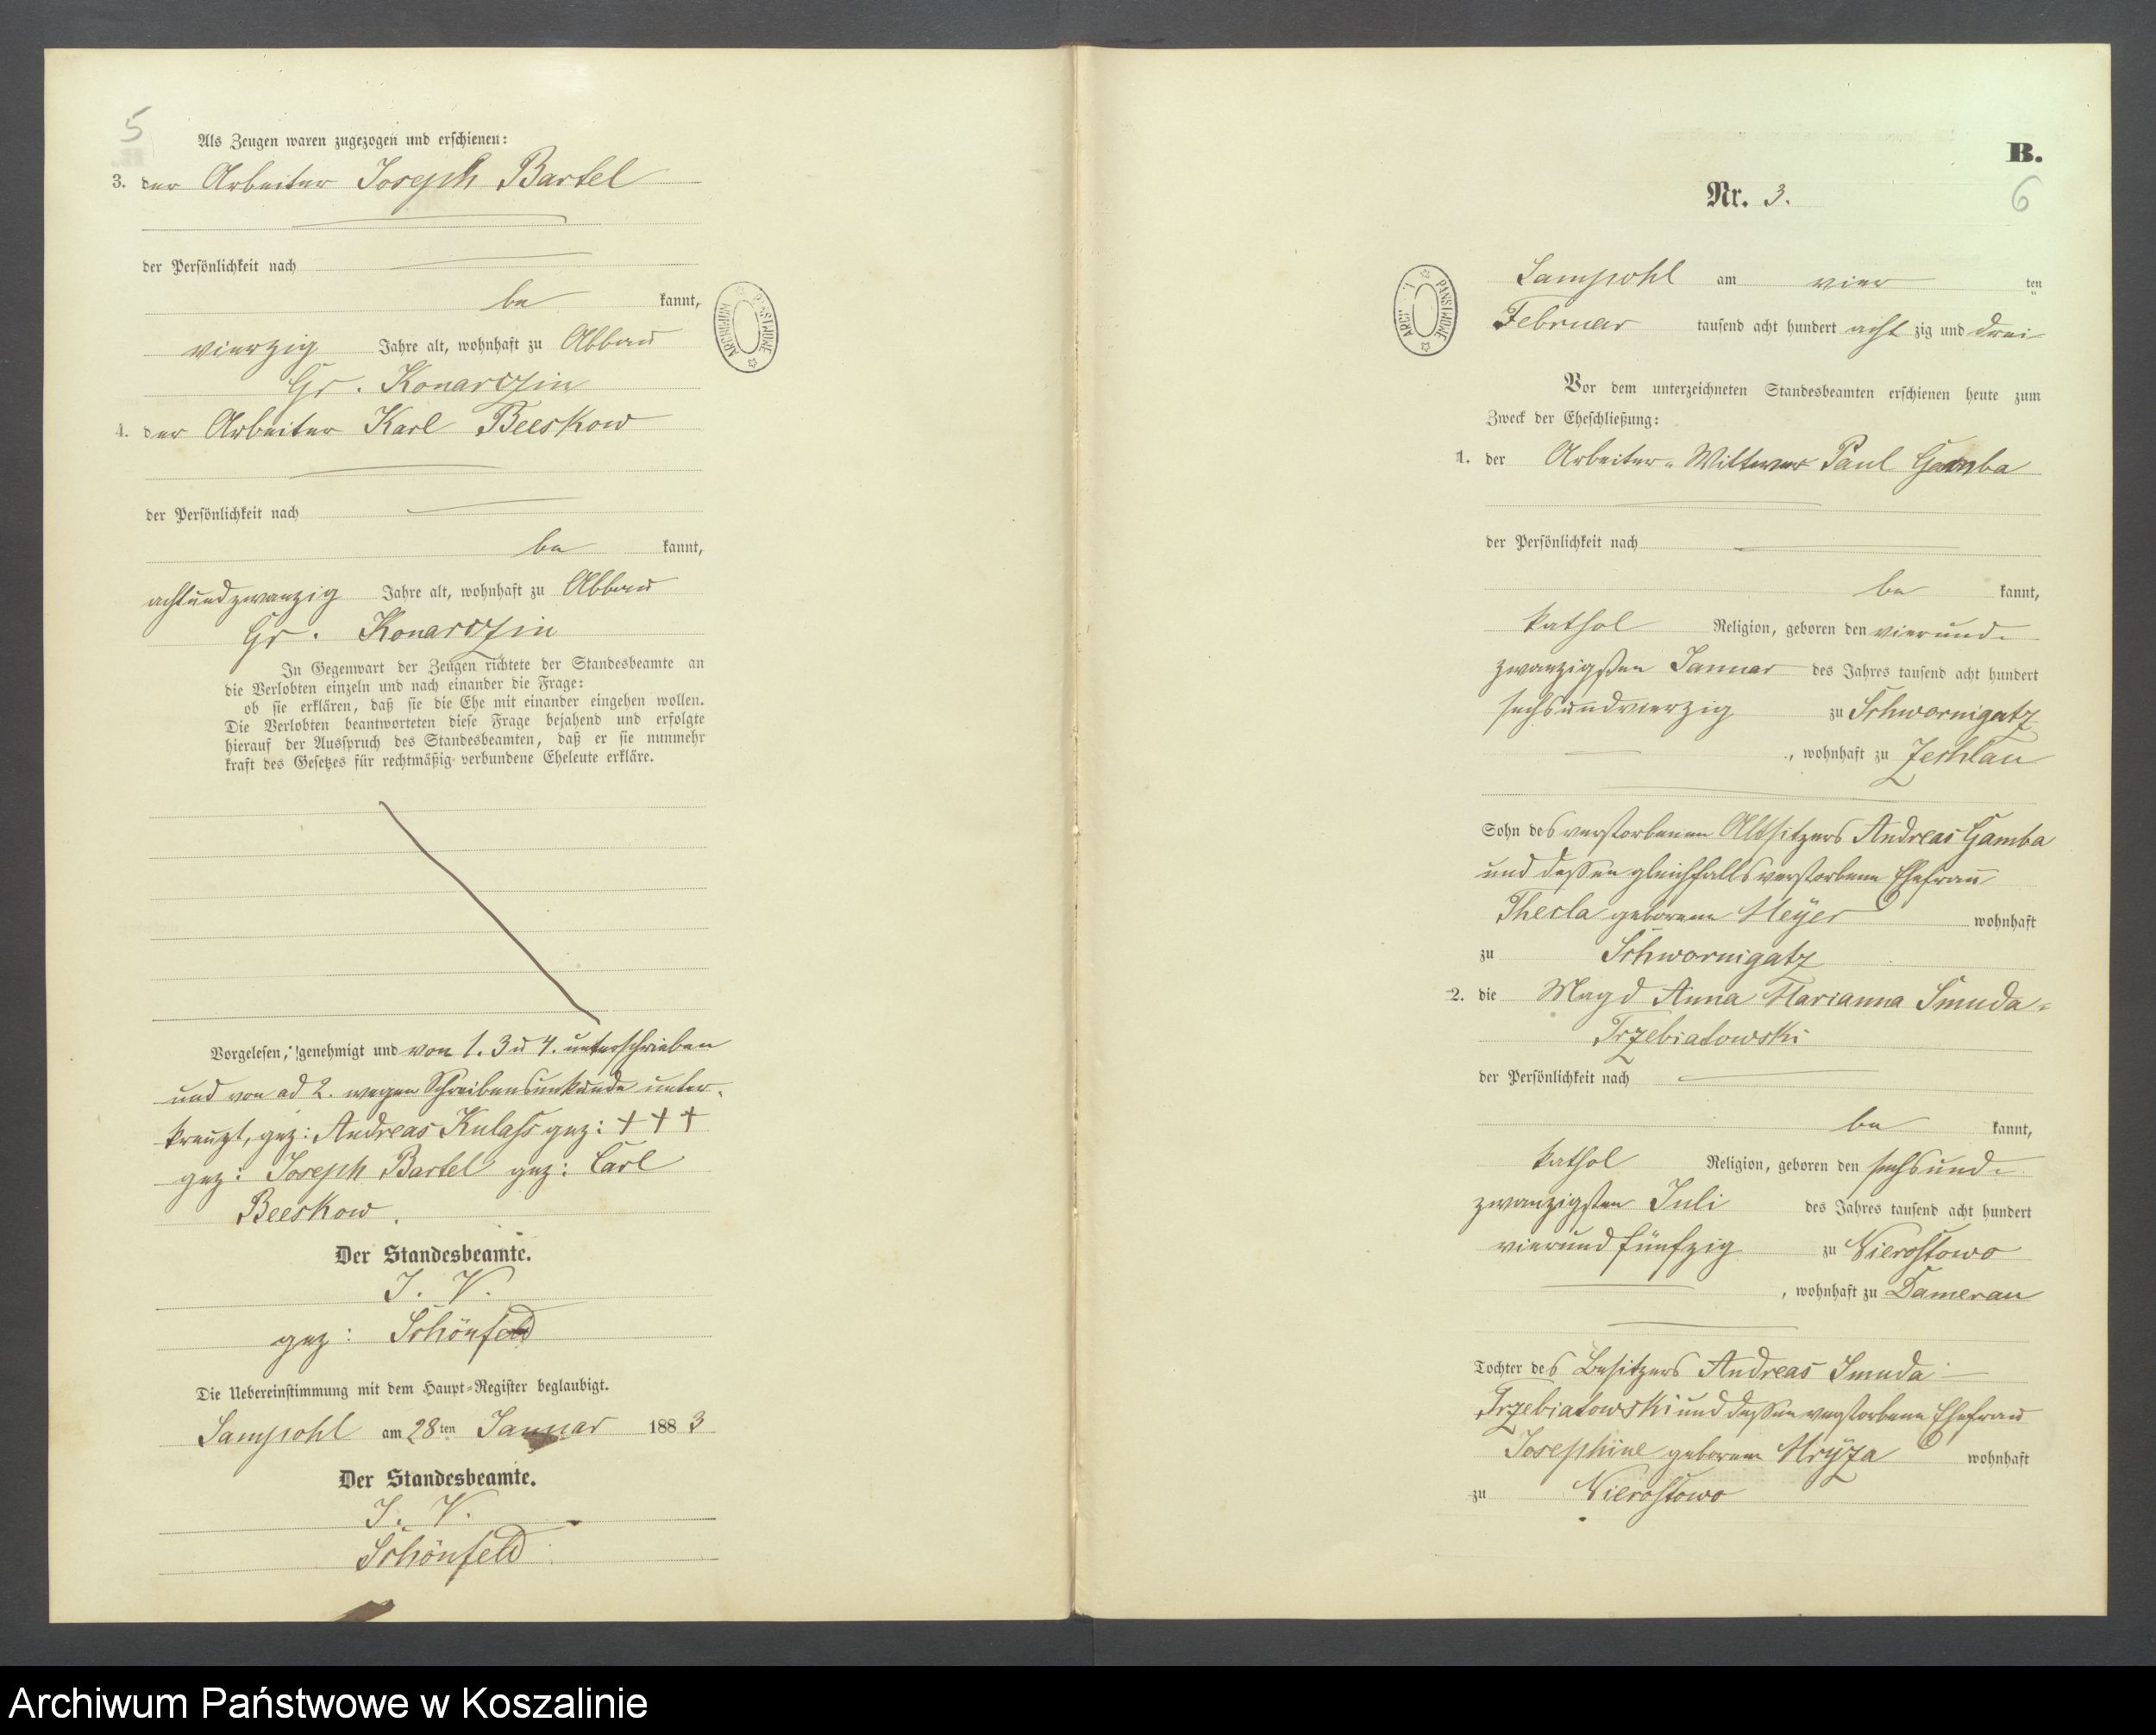 5
Als Zeugen waren zugezogen und erschienen:
3. der Arbeiter Joseph Bartel
der Persönlichkeit nach
be kannt,
vierzig Jahre alt, wohnhaft zu Abbau
Gr. Konarczin
4. der Arbeiter Karl Beeskow
der Persönlichkeit nach
be kannt,
achtundzwanzig Jahre alt, wohnhaft zu Abbau
Gr. Konarczin
In Gegenwart der Zeugen richtete der Standesbeamte an
die Verlobten einzeln und nach einander die Frage:
ob sie erklären, daß sie die Ehe mit einander eingehen wollen.
Die Verlobten beantworteten diese Frage bejahend und erfolgte
hierauf der Ausspruch des Standesbeamten, daß er sie nunmehr
kraft des Gesetzes für rechtmäßig verbundene Eheleute erkläre.
Vorgelesen, genehmigt und von 1. 3 u 4. unterschrieben
und von ad 2. wegen Schreibensunkunde unter-
kreuzt, gez: Andreas Kulass gez: + + +
gez: Joseph Bartel gez: Carl
Beeskow.
Der Standesbeamte.
J. V.
gez: Schönfeld
Die Uebereinstimmung mit dem Haupt-Register beglaubigt.
Sampohl am 28ten Januar 1883
Der Standesbeamte.
J. V.
Schönfeld
ARCHIWUM PAŃSTWOWE
B.
6
Nr. 3.
ARCHIWUM PAŃSTWOWE
Sampohl am vier ten
Februar tausend acht hundert acht zig und drei
Vor dem unterzeichneten Standesbeamten erschienen heute zum
Zweck der Eheschließung:
1. der Arbeiter-Wittwer Paul Gamba
der Persönlichkeit nach
be kannt,
kathol Religion, geboren den vierund-
zwanzigsten Januar des Jahres tausend acht hundert
sechsundvierzig zu Schwornigatz
, wohnhaft zu Zechlau
Sohn des verstorbenen Altsitzers Andreas Gamba
und dessen gleichfalls verstorbene Ehefrau
Thecla geborene Meyer wohnhaft
zu Schwornigatz
2. die Magd Anna Marianna Smuda-
Trzebiatowski
der Persönlichkeit nach
be kannt,
kathol Religion, geboren den sechsund-
zwanzigsten Juli des Jahres tausend acht hundert
vierundfünfzig zu Nierostowo
, wohnhaft zu Damerau
Tochter des Besitzers Andreas Smuda-
Trzebiatowski und dessen verstorbene Ehefrau
Josephine geborene wohnhaft
zu Nierostowo
Archiwum Państwowe w Koszalinie